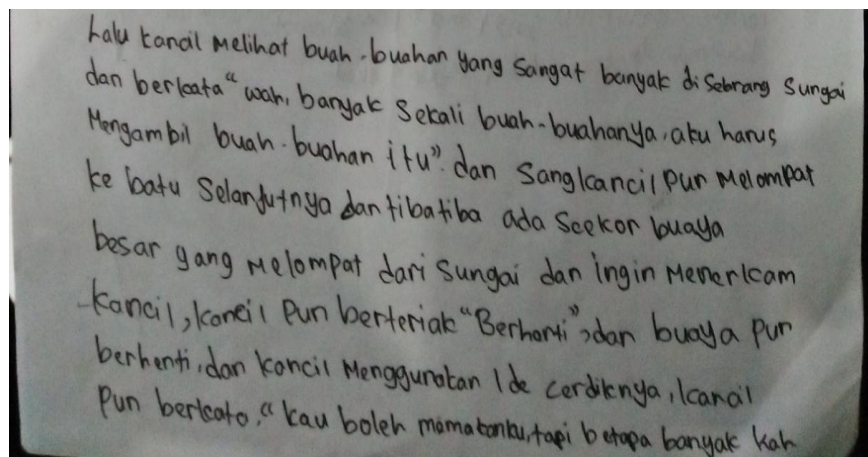 Lalu kancil Melihat buah-buahan yang Sangat banyak di Sebrang Sungai
dan berkata "wah, banyak Sekali buah-buahanya, aku harus
Mengambil buah-buahan itu". dan Sang kancil Pun Melompat
ke batu Selanjutnya dan tibatiba ada Seekor buaya
besar yang Melompat dari Sungai dan ingin Menerkam
kancil, kancil Pun berteriak "Berhenti", dan buaya Pun
berhenti, dan kancil Menggunakan Ide cerdiknya, kancil
Pun berkata, "kau boleh mamakanku, tapi betapa banyak kah